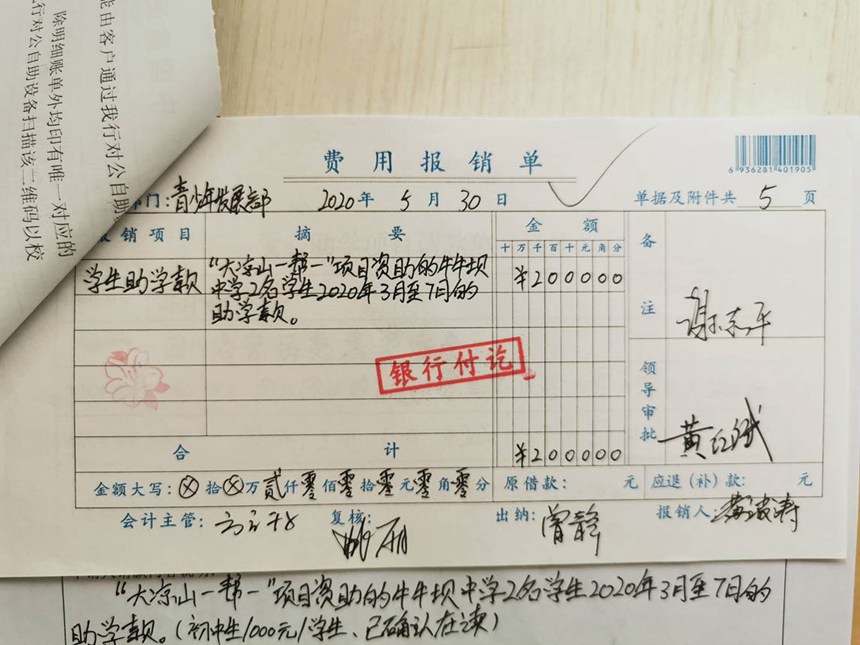 能由客户通过我行对公自助
除明细账单外均印有唯一对应的
行对公自助设备扫描该二维码以校
费用报销单
6 936281 401905
部门：青少年发展部 2020年 5月 30日 单据及附件共 5 页
报销项目 摘要 金额 备注
十万千百十元角分
学生助学款 “大凉山一帮一”项目资助的牛牛坝 ¥200000
中学2名学生2020年3月至7月的
助学款。
银行付讫
领导审批
合计 ¥200000
金额大写：ⓧ拾ⓧ万贰仟零佰零拾零元零角零分 原借款： 元 应退（补）款： 元
会计主管： 复核： 出纳：曾静 报销人：
“大凉山一帮一”项目资助的牛牛坝中学2名学生2020年3月至7月的
助学款。（初中生1000元/学生、已确认在读）